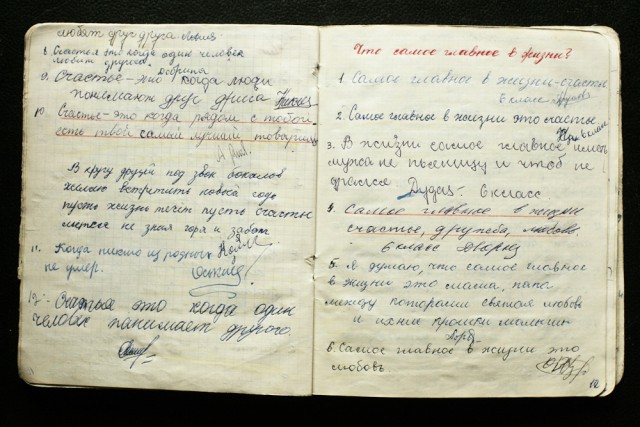 любят друг друга.
8. Счастья это когда один человек
любит другого.
Добрина
9. Счастье - это когда люди
понимают друг друга
10. Счастье - это когда рядом с тобой
есть твой самый лучший товарищ
В кругу друзей под звон бокалов
желаю встретить новый год
пусть жизнь течёт пусть счастье
не зная горя и забот
Коля
11. Когда письмо из родных
не умер.
12. Счастье это когда один
человек панимает другого.
Что самое главное в жизни?
1. Самое главное в жизни - счастье
6 класс
2. Самое главное в жизни это счастье
6 класс
3. В жизни самое главное иметь
мужа не пьяницу и чтоб не
дрался Дудас - 6 класс
4. Самое главное в жизни
счастье, дружба, любовь
6 класс Дворец
5. Я думаю, что самое главное
в жизни это мама, папа
между которыми связала любовь
и ихние крошки малыши
6. Самое главное в жизни это
любовь